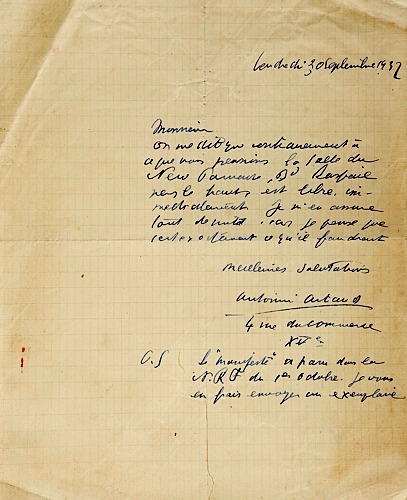 Vendredi 30 Septembre 1932
Monsieur
on me dit que contrairement à
ce que vous pensions la salle du
New Parnasse, Bd Raspail
vers le haut, est libre, im-
médiatement. Je m'en assure
tout de suite, car je pense que
c'est exactement ce qu'il faudrait
Meilleures Salutations
Antonin Artaud
4 rue du Commerce
XVe
P.S Le "manifeste" a paru dans la
N.R.F du 1er octobre. Je vous
en fais envoyer un exemplaire